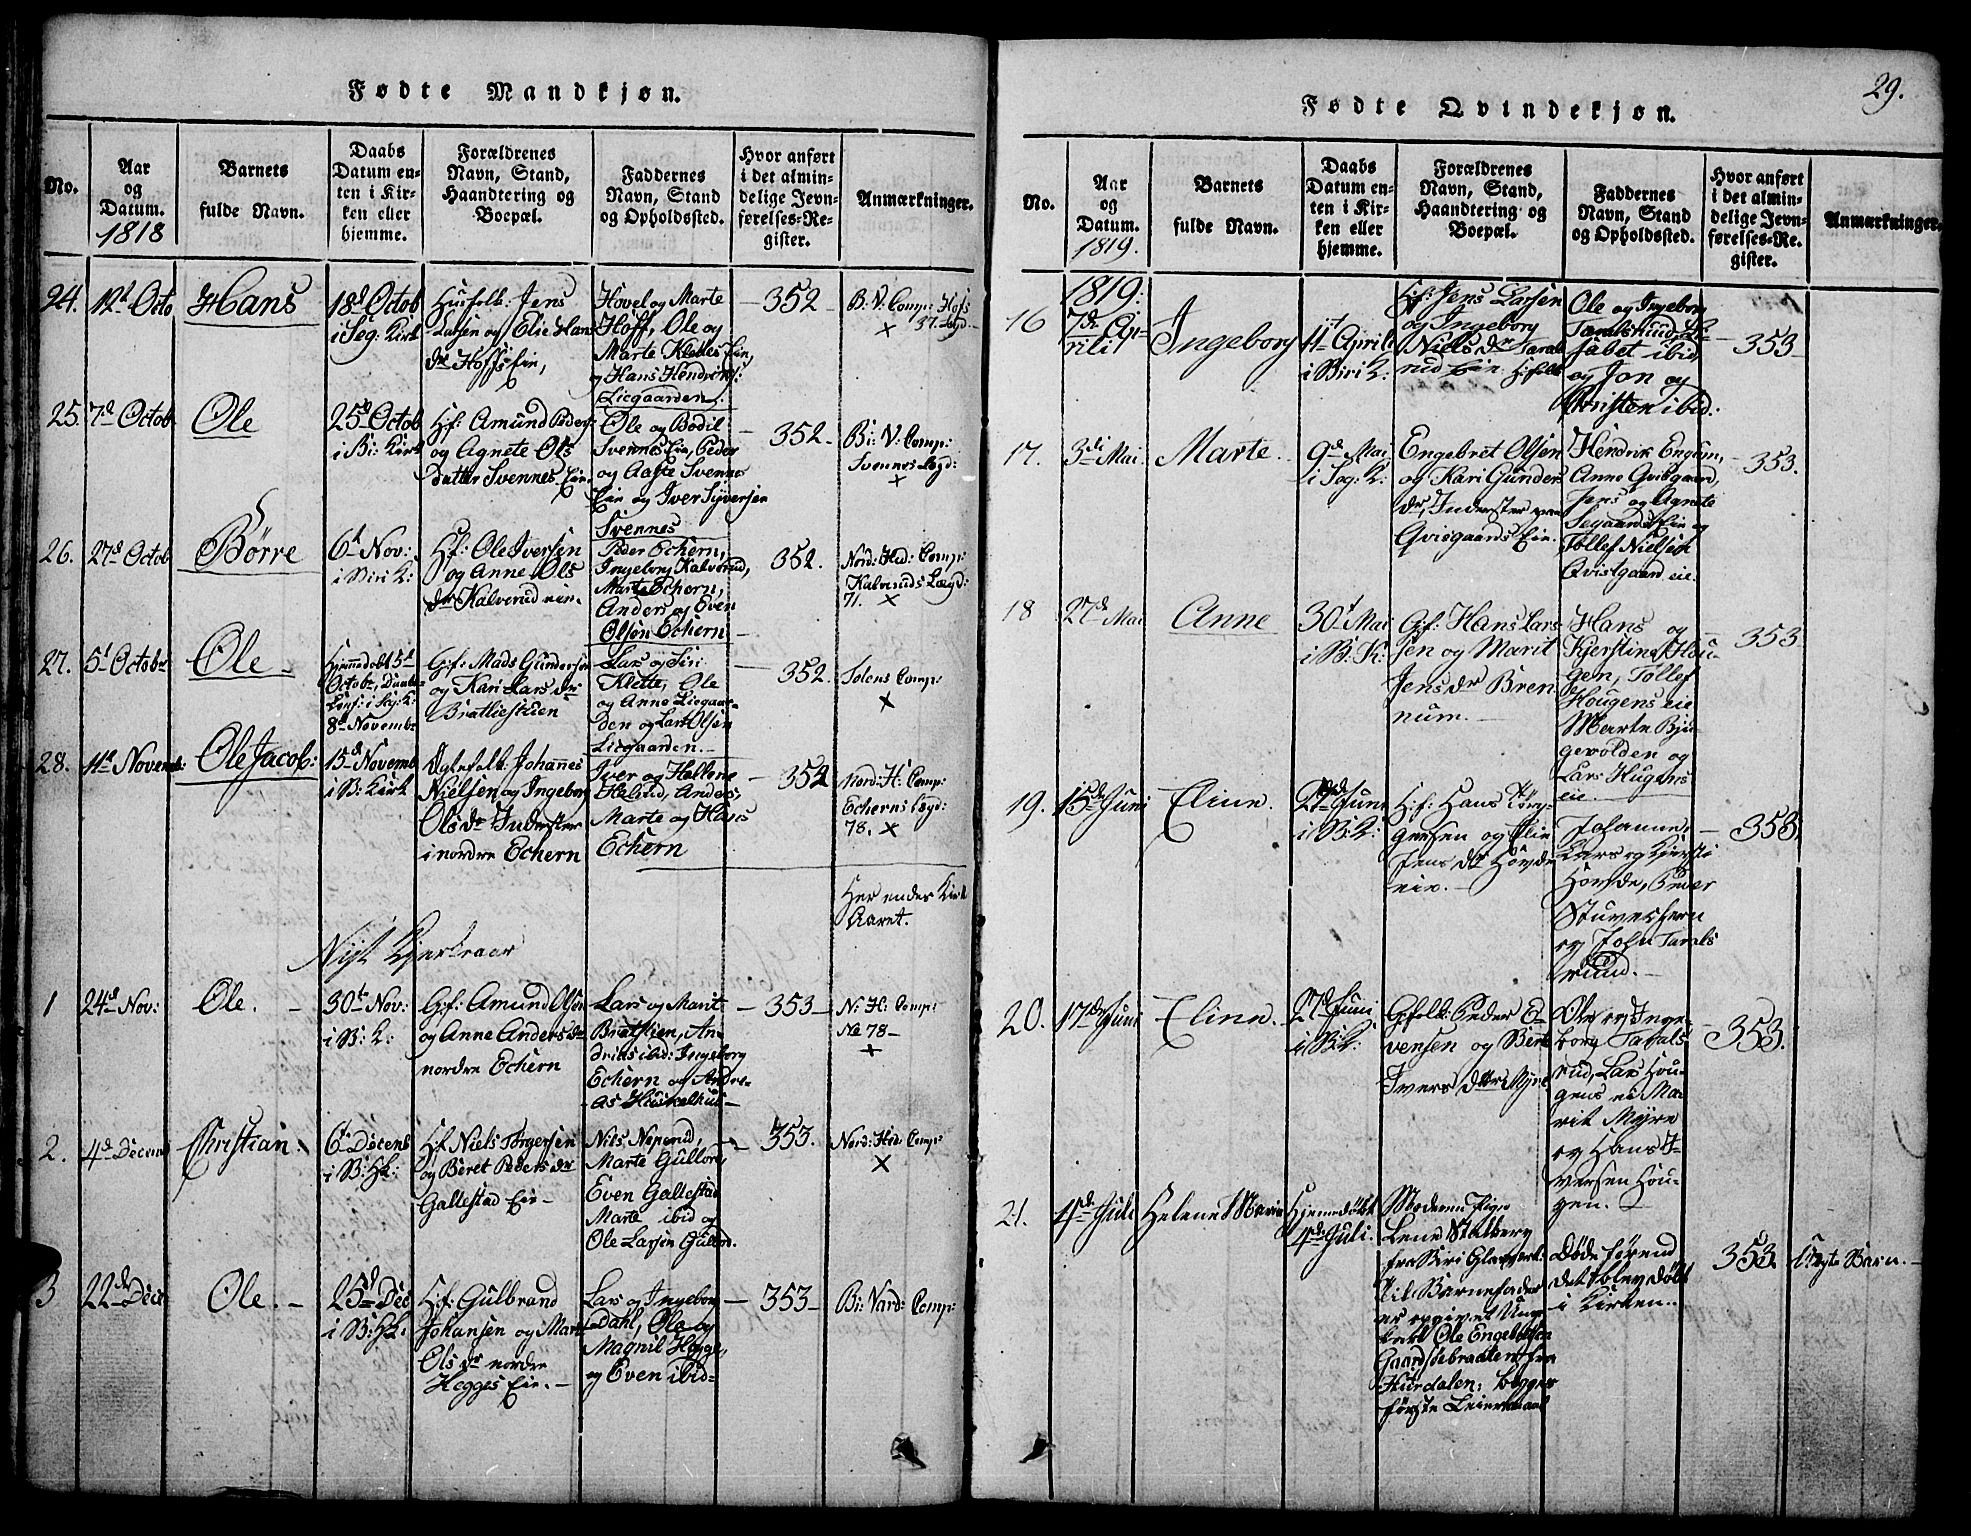 Fødte Mandkjøn.
No.
Aar
og
Datum.
1818
Barnets
fulde Navn.
Daabs
Datum en-
ten i Kir-
ken eller
hjemme.
Forældrenes
Navn, Stand,
Haandtering og
Boepæl.
Faddernes
Navn, Stand
og Opholdssted.
Hvor anført
i det almin-
delige Jevn-
førelses-Re-
gister.
Anmærkninger.
24.
12t Octo
Hans
18d Octob
i Seg: Kirk
Husfolk: Jens
Larsen og Elie Hans
dr Hoffs Eie,
Hovel og Marte
Hoff, Ole og
Marte Klettes Eie,
og Hans Hendrics:
Liegaarden.
352
B: V: Comp: Hofs
37. Legd.
×
25.
7d Octob
Ole
25d Octob
i Bi: Kirk
Hf: Amund Peders:
og Agnete Ols
Datter Svennes Eie.
Ole og Bodil
Svennes Eie, Peder
og Aaste Svennes
Eie og Iver Syversen
Svennes
352.
Bi: V: Comp:
Svennes Legd:
×
26.
27d Octob
Börre
6t Nov:
i Biri K:
Hf: Ole Iversen
og Anne Ols
dr Kalverud eie.
Peder Echern,
Ingeborg Kalverud,
Marte Echern,
Anders og Even
Olsen Echern
352.
Nord: Hed: Comp:
Kalveruds Lægd:
71. ×
27.
5t Octobr
Ole
Hjemmedøbt 5t
Octobr,
i Seg: K:
8d Novembr
Gf: Mads Gundersen
og Kari Lars dr
Bratliestuen
Lars og Siri
Klette, Ole
og Anne Liegaar-
den og Lars Olsen
Liegaarden.
352.
Tolens Comp:
×
28.
11t Novemb:
Ole Jacob:
15d Novemb
i B: Kirk
Ægtefolk: Johannes
Nielsen og Ingeborg
Ols dr Inderster
i nordre Echern
Iver og Hellene
Halsted, Anders,
Marte og Hans
Echern
352
Nord: H: Comp:
Echerns Legd:
78. ×
Her ender Kirk
Aaret.
Nyt Kjerkeaar
1
24d Nov:
Ole.
30te Nov:
i B: K:
Gf: Amund Olsen
og Anne Anders dr
nordre Echern
Lars og Marit
Bratlien, An-
drias ibid: Ingeborg
Echern og Andre-
as Huskelhus
353
N: H: Comp:
No 78
×
2.
4d Decemb
Christian.
6t Decemb
i B: Hk:
Hf Niels Torgersen
og Beret Peders dr
Gallestad Eie
Nils Neperud,
Marte Gullord,
Even Gallestad
Marte ibid og
Ole Larsen Gullord.
353.
Nord: Hed: Comp:
×
3
22de Dece
Ole.
25d Dec
i B: Hk.
Hf: Gulbrand
Johansen og Marte
Ols dr nordre
Hegges Eie.
Lars og Ingeborg
Dahl, Ole og
Magnil Hegge,
og Even ibid
353
Bi: Vard: Comp:
29.
Fødte Qvindekjøn.
No.
Aar
og
Datum.
1819.
Barnets
fulde Navn.
Daabs
Datum en-
ten i Kir-
ken eller
hjemme.
Forældrenes
Navn, Stand,
Haandtering og
Boepæl.
Faddernes
Navn, Stand
og Opholdssted.
Hvor anført
i det almin-
delige Jevn-
førelses-Re-
gister.
Anmærkninger.
1819.
16
7de Ap-
rili
Ingeborg
11t Aprili
i Biri K:
Hf: Jens Larsen
og Ingeborg
Niels dr Tarals
rud Eie
Ole og Ingeborg
Taralsrud, Li-
sabet ibid
og Jon og
Kristen ibid:
353
17.
3di Mai
Marte.
9d Mai
i Seg: K:
Engebret Olsen
og Kari Gunders
dr, Inderster paa
Qvisgaards Eie.
Hendrik Engum,
Anne Qvisgaard,
Jens og Agnete
Segaards Eie og
Tollef Nielsen
Qvistgaard eie.
353.
18
27d Mai
Anne
30t Mai
i B: K:
Gf: Hans Lars-
sen og Marit
Jens dr Bren
num.
Hans og
Kjerstine Hou-
gen, Tollef
Hougens eie
Marte Byn
gevolden og
Lars Hugens
eie.
353
19.
15de Juni
Elinn.
27d Juni
i B: K:
Hf: Hans Törg-
ersen og Elie
Jens dr Hovde
eie.
Johanne,
Lars og Kjersti
Hovde, Peder
Stuveshern
og John Tarals
ruud.
353.
20.
17de Juni
Elinn.
27d Juni
i B: K:
Gfolk: Peder E-
vensen og Birte
Ivers datter Myre
Ole og Inge-
borg Tarals
rud, Lars Hou-
gens ei Ma-
rit Myre
og Hans I-
versen Hou-
gen.
353.
21.
4de Juli
Helene Marie
Hjemmedøbt
4de Juli.
Moderen Pige
Lene Stalberg
fra Biri Glasverk:
Til Barnefader
er opgivet Ung
karl Ole Engebretsen
Gaardsöebraaten fra
Hurdalen; begges
første Leiermaal
Døde førend
det blev døbt
i Kirken.
353.
Uegte Barn.